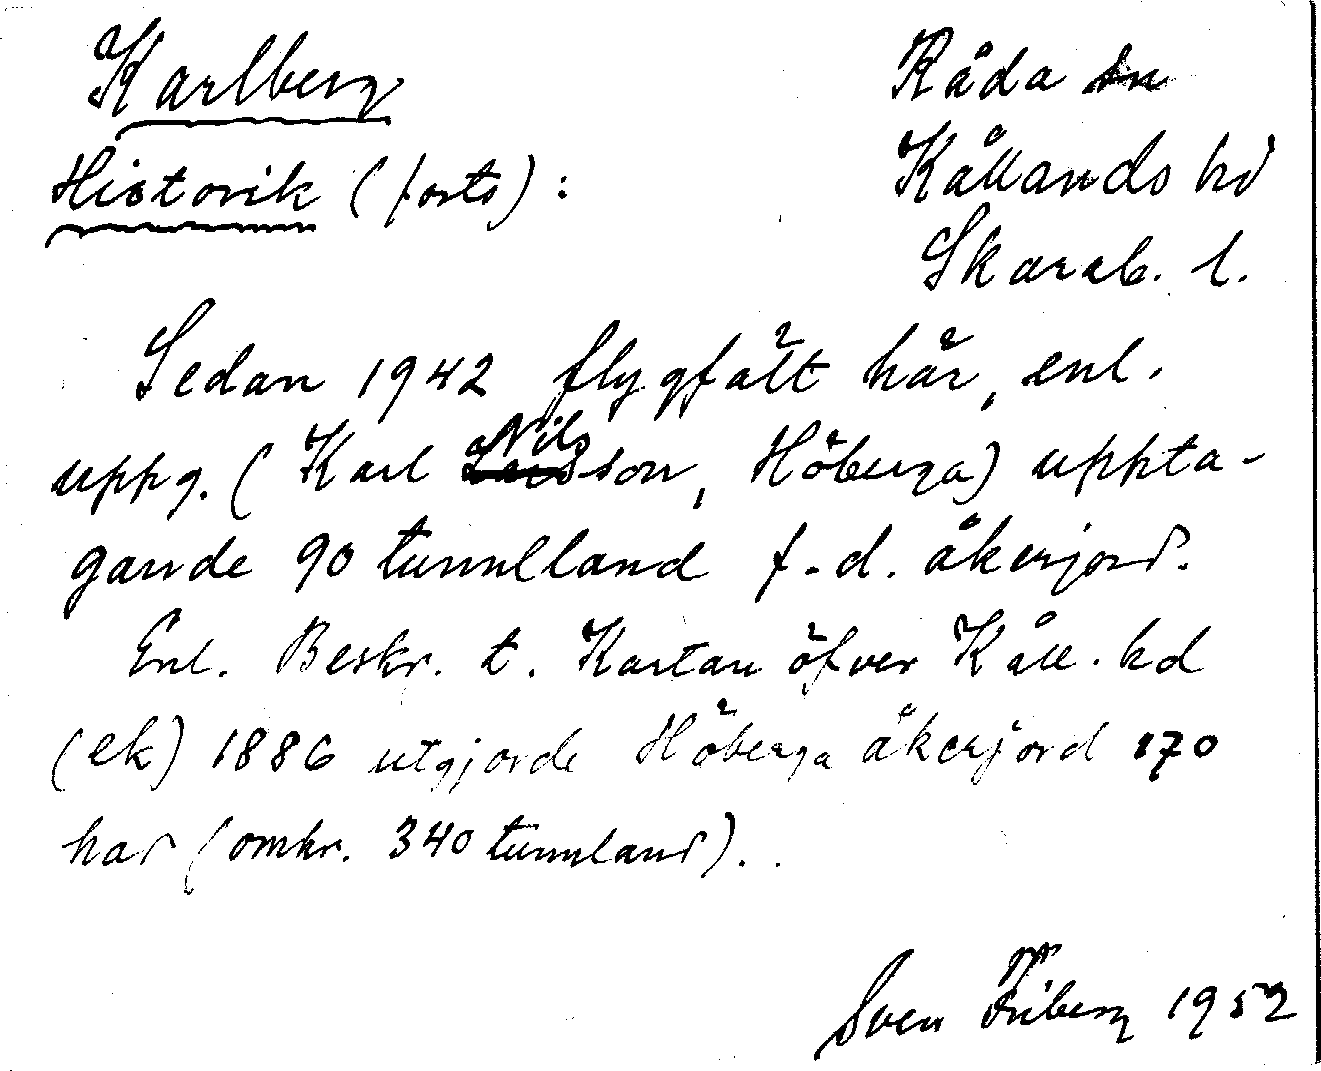 Karlberg
Råda sn
Kållands hd
Skarab. l.
Historik (forts):
Sedan 1942 flygfält här, enl.
uppg. (Karl Nilsson, Höberga) uppta-
gande 90 tunnlland f.d. åkerjord.
Enl. Beskr. t. Kartan öfver Kåll. hd
(ek) 1886 utgjorde Höberga åkerjord 170
har (omkr. 340 tunnland).
Sven Friberg 1952